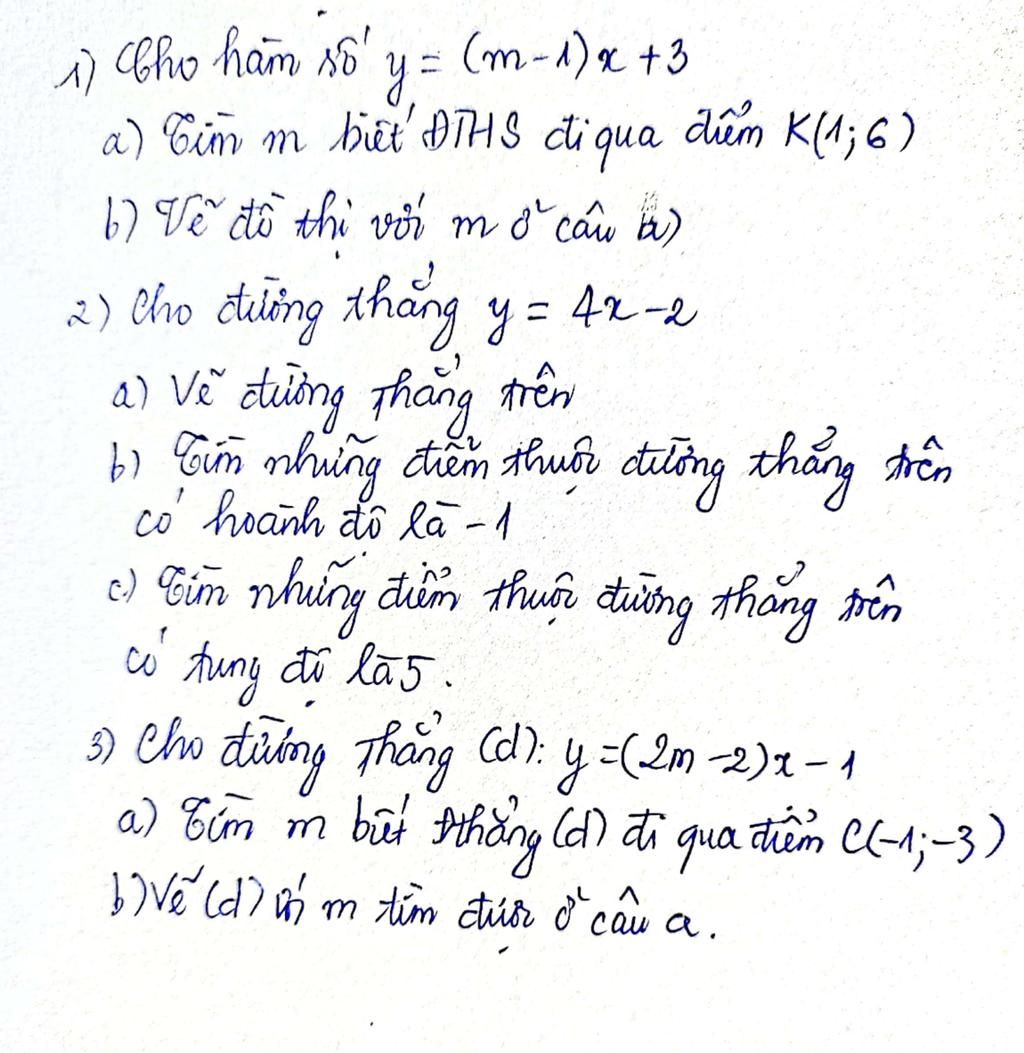 1) Cho hàm số y = (m-1)x +3
a) Tìm m biết ĐTHS đi qua điểm K(1;6)
b) Vẽ đồ thị với m ở câu a)
2) Cho đường thẳng y = 4x-2
a) Vẽ đường thẳng trên
b) Tìm những điểm thuộc đường thẳng trên
có hoành độ là -1
c) Tìm những điểm thuộc đường thẳng trên
có tung độ là 5.
3) Cho đường thẳng (d): y=(2m-2)x-1
a) Tìm m biết Đthẳng (d) đi qua điểm C(-1;-3)
b) Vẽ (d) với m tìm được ở câu a.